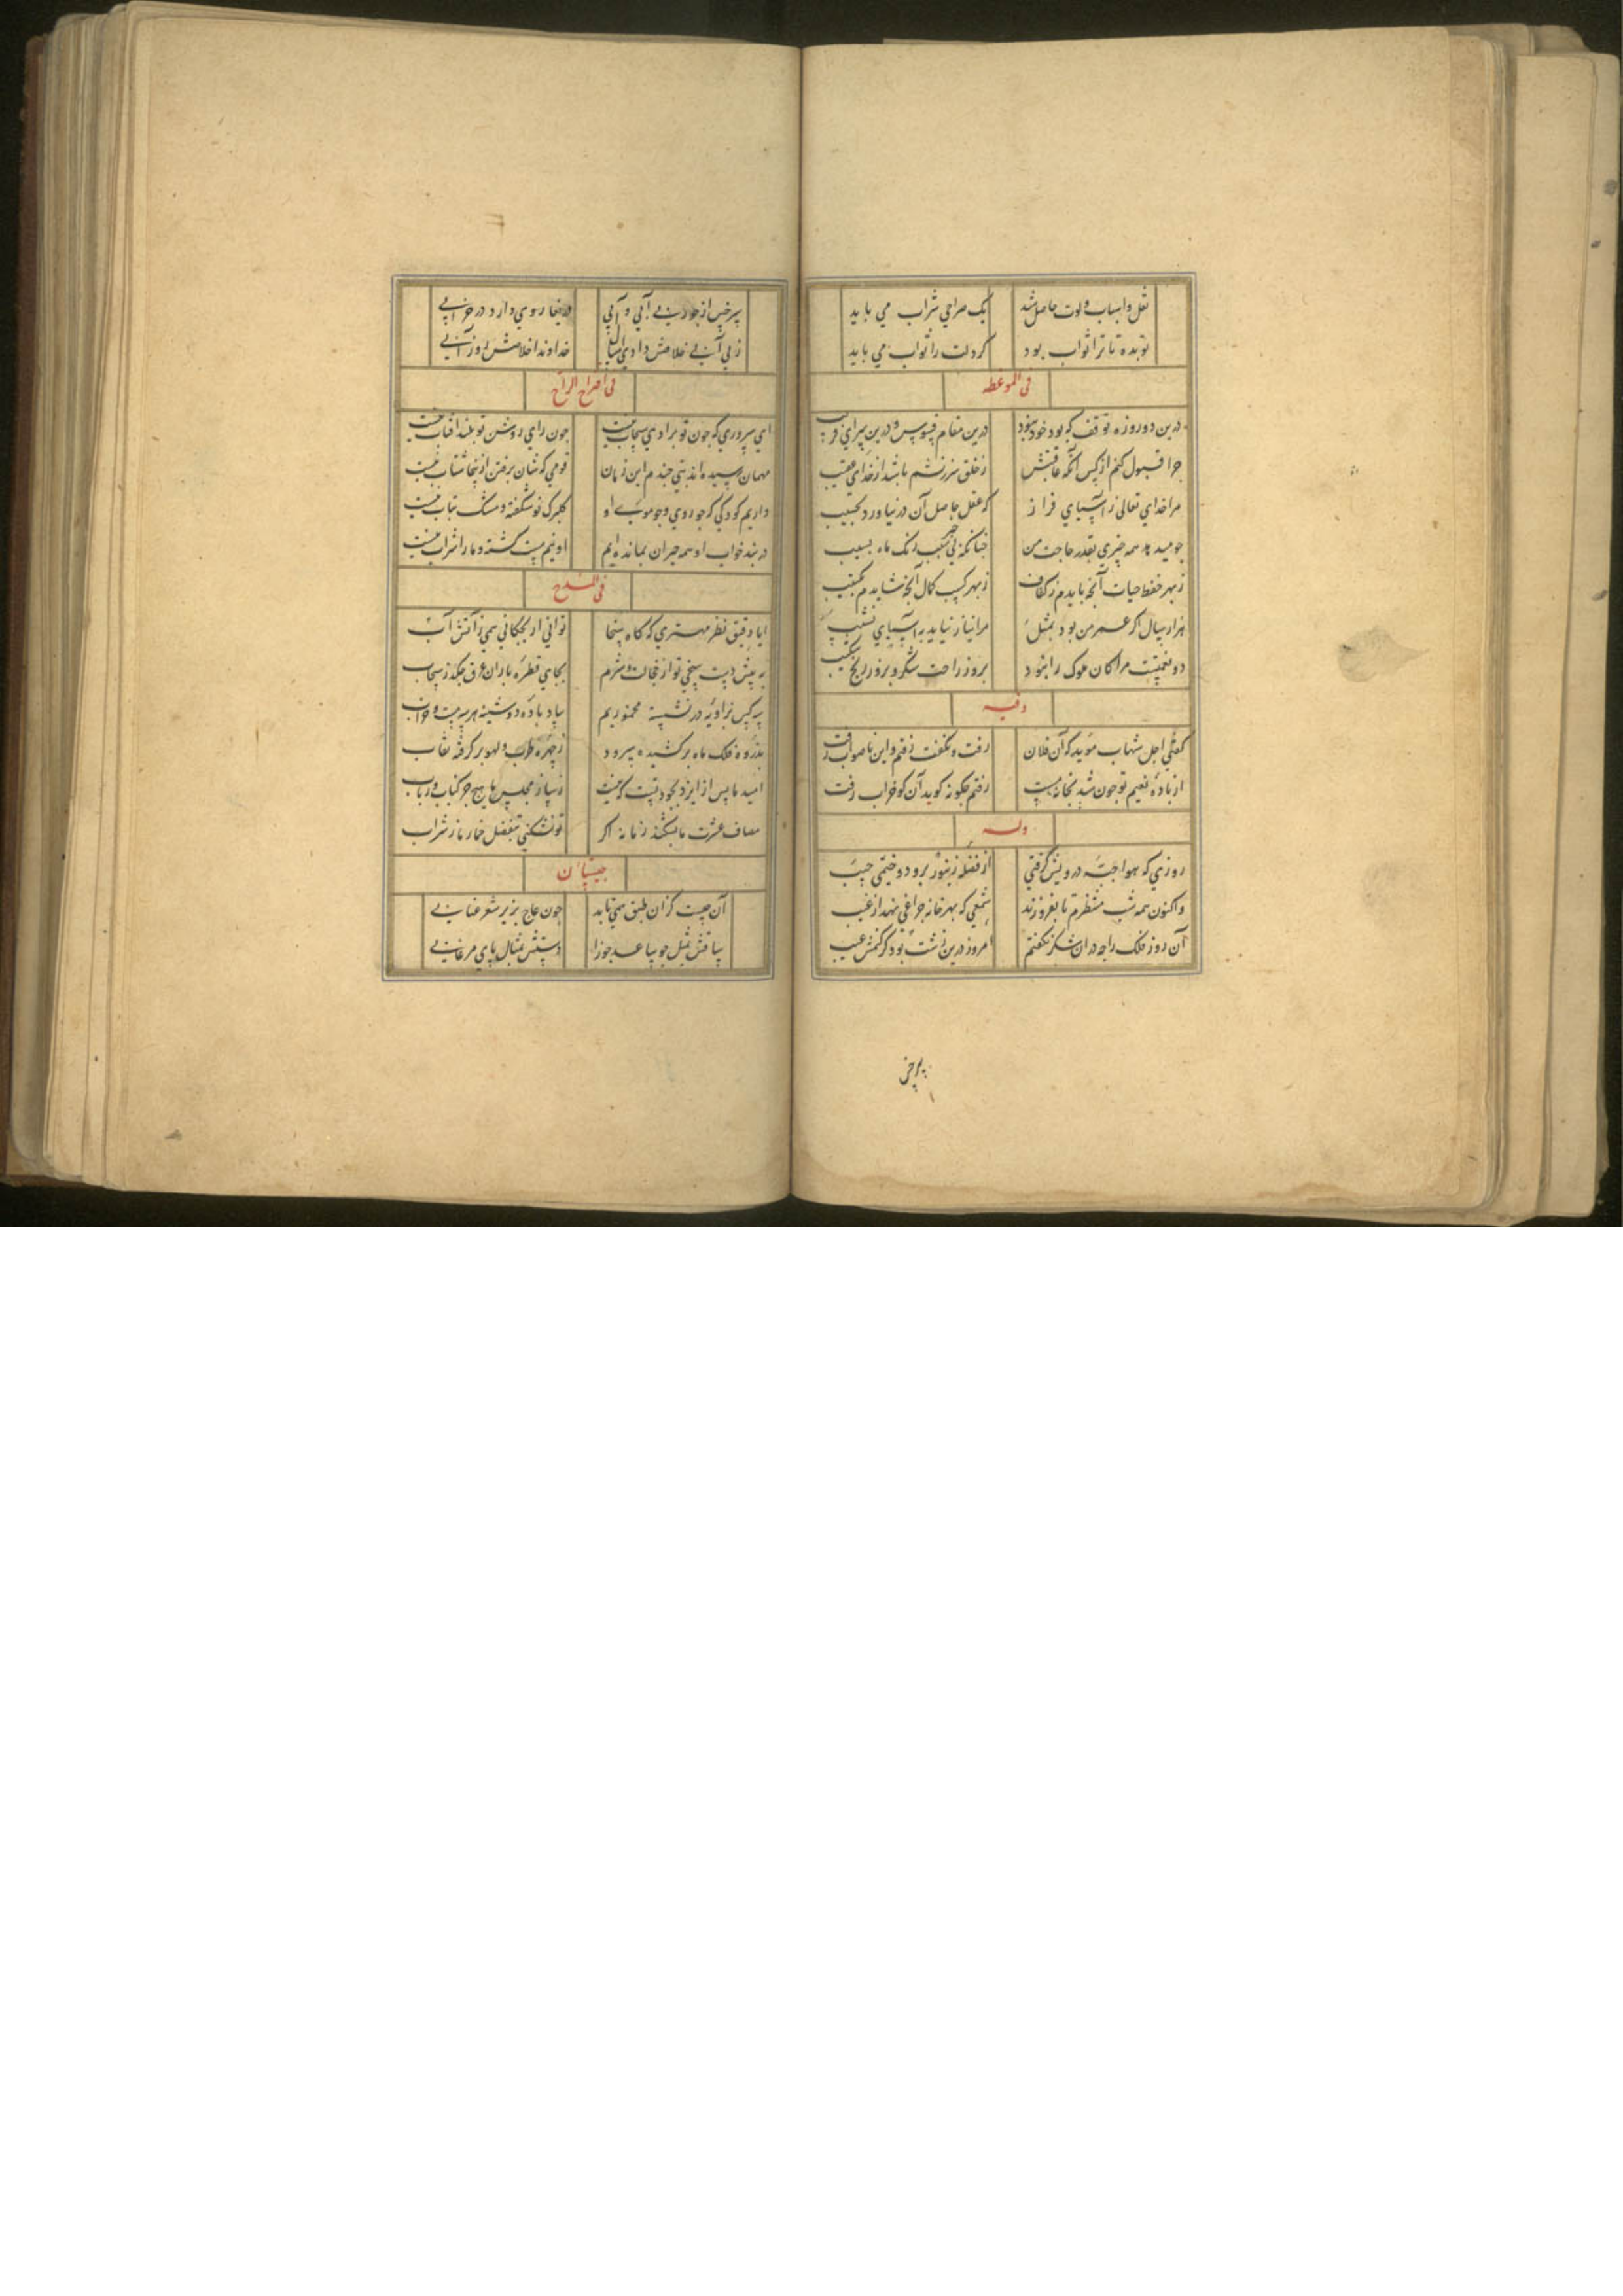 نقل و اسباب و لوت حاصل شد یک صراحی شراب می باید
تو بده تا ترا ثواب بود کر دلت را ثواب می باید
فی الموعظه
درین دو روزه توقف که بود خود نبود درین مقام فسوس و درین سرای فریب
جرا قبول کنم از کس آنکه عاقبتش ز خلق سرزنشم باشد از خدای عتیب
مرا خدای تعالی ز آسیای فراز که عقل حاصل آن در نیاورد بحسیب
جو میدهد همه جیزی بقدر حاجت من جنانکه بی
ز بهر حفظ حیات آنجه بایدم ز کفاف ز بهر کسب کمال آنجه شایدم ز کتیب
هزار سال اکر عمر من بود بمثل مرا نیاز نیاید به آسیای نشیب
دو نعمتست مرا کان ملوک را نبود بروز راحت شکر و بروز رنج شکیب
وفیه
کفتی اجل شهاب موید که آن فلان رفت و نکفت رفتم و این ناصواب رفت
از باده نعیم تو جون شد بخانه مست رفتم جکونه کوید آن کو خراب رفت
وله
روزی که بهوا جبه در ویش کرفتی از فضله زنبور برو دوختمی جیب
و اکنون همه شب منتظرم تا بفروزند شمعی که بهر خانه جراغی نهد از غیب
آن روز فلک را جو در آن شکر نکفتم امروز درین زشت بود کر کنمش عیب
سرخس از جور بی آبی و آبی دریغا روی دارد در خرابی
ز بی آبی خلاصش دادی امسال خداوندا خلاصش ده ز آبی
فی اقتراح الراح
ای سروری که جون تو برادی سحاب نیست جون رای روشن تو بلند آفتاب نیست
مهمان رسیده اند بتی جندم این زمان قومی که شان برفتن ازینجا شتاب نیست
داریم کودکی که جو روی و جو موی او کلبرک نو شکفته و مشک بتاب نیست
در بند خواب او همه حیران بمانده ایم او نیم مست کشته و ما را شراب نیست
فی المدح
ایا دقیق نظر مهتری که کاه سخا توانی ار بجکانی همی ز آتش آب
به پیش دست سخی تو از خجالت و شرم بجای قطره باران عرق جکد ز سحاب
سه کس بزاویه در نشسته مخموریم بیاد باده دوشینه هر سه مست و خراب
بذروه فلک ماه برکشیده سرود ز جهره طرب و لهو بر کرفته نقاب
امید ما پس از ایزد بجود تست که نیست ز ساز مجلس ما هیج جز کتاب و رباب
مصاف عشرت ما بشکند زمانه اکر تو نشکنی بتفضل خمار ما ز شراب
جیستان
آن جیست کز آن طبق همی تابد جون عاج بزیر شعر عنابی
ساقش بمثل جو ساعد حورا دستش بمثال پای مرغابی